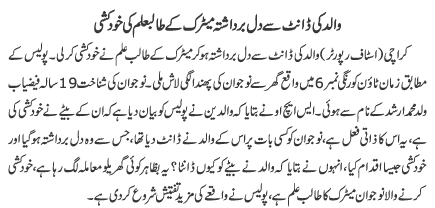 والد کی ڈانٹ سے دل برداشتہ میٹرک کے طالبعلم کی خودکشی
کراچی (اسٹاف رپورٹر) والد کی ڈانٹ سے دل برداشتہ ہو کر میٹرک کے طالب علم نے خودکشی کر لی۔ پولیس کے
مطابق زمان ٹاؤن کورنگی نمبر 6 میں واقع گھر سے نوجوان کی پھندا لگی لاش ملی۔ نوجوان کی شناخت 19 سالہ فیضیاب
ولد محمد ارشد کے نام سے ہوئی۔ ایس ایچ او نے بتایا کہ والدین نے پولیس کو بیان دیا ہے کہ ان کے بیٹے نے خودکشی کی
ہے، یہ اس کا ذاتی فعل ہے، نوجوان کو کسی بات پر اس کے والد نے ڈانٹ دیا تھا، جس سے وہ دل برداشتہ ہو گیا اور
خودکشی جیسا اقدام کیا، انہوں نے بتایا کہ والد نے بیٹے کو کیوں ڈانٹا؟ یہ بظاہر کوئی گھریلو معاملہ لگ رہا ہے، خودکشی
کرنے والا نوجوان میٹرک کا طالب علم ہے، پولیس نے واقعے کی مزید تفتیش شروع کر دی ہے۔